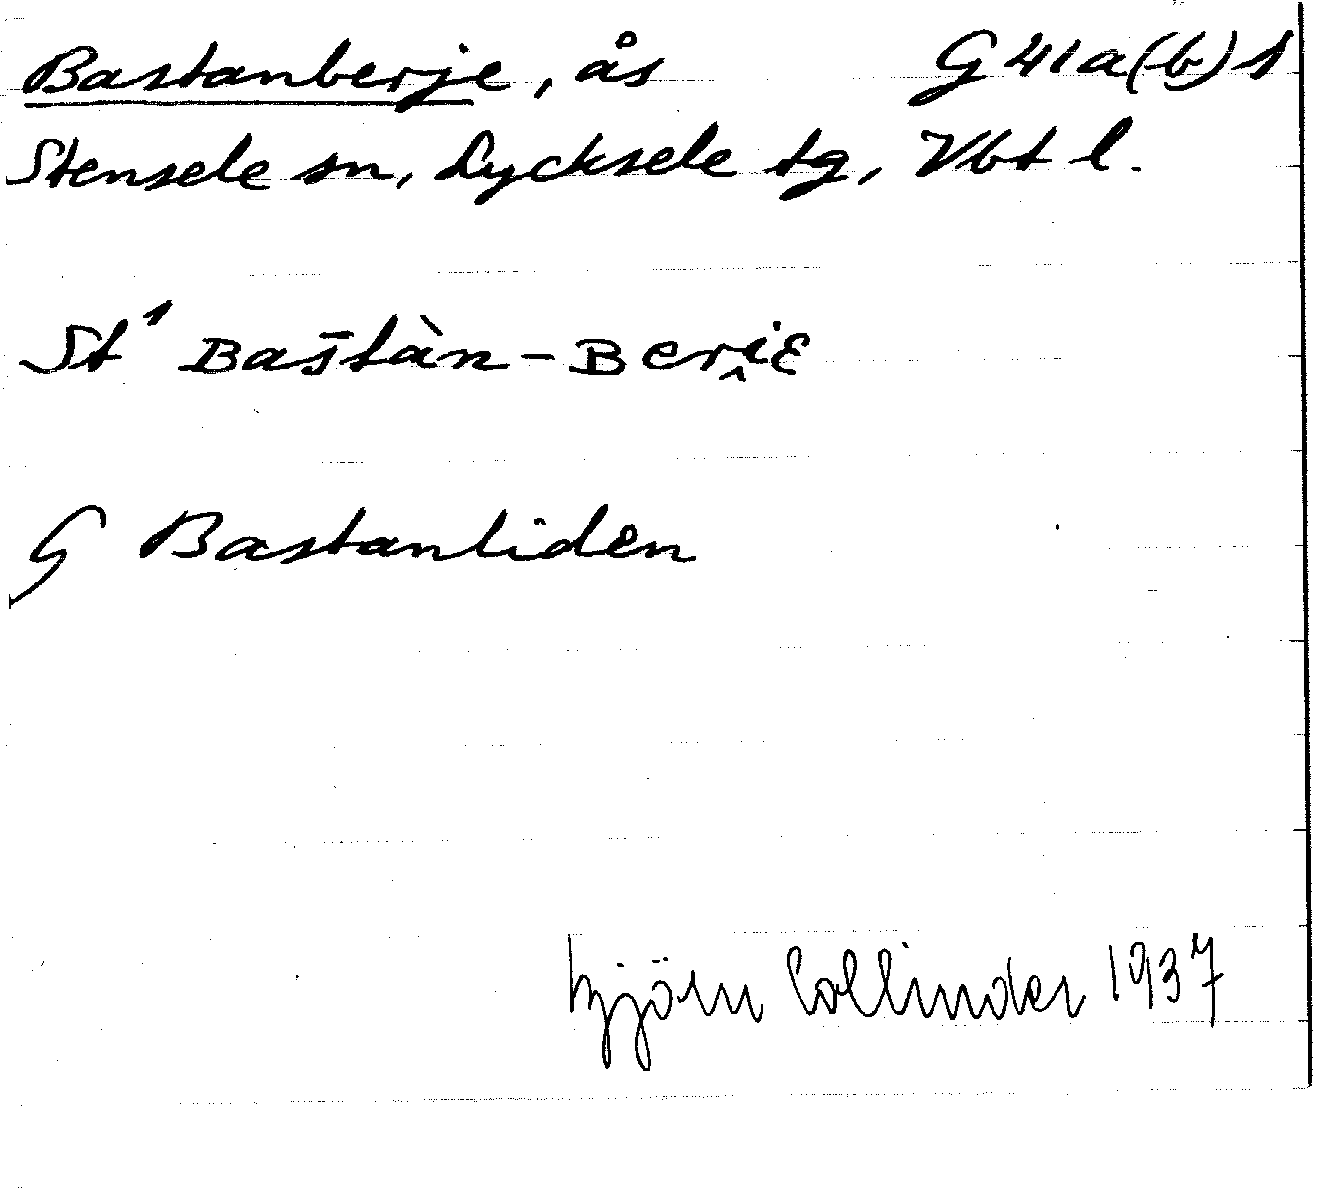 Bastanberje, ås G 41a(b)1
Stensele sn, Lycksele tg, Vbt l.
St¹ Bas̄tàn-Beri̭ɛ
G Bastanliden
Björn Collinder 1937